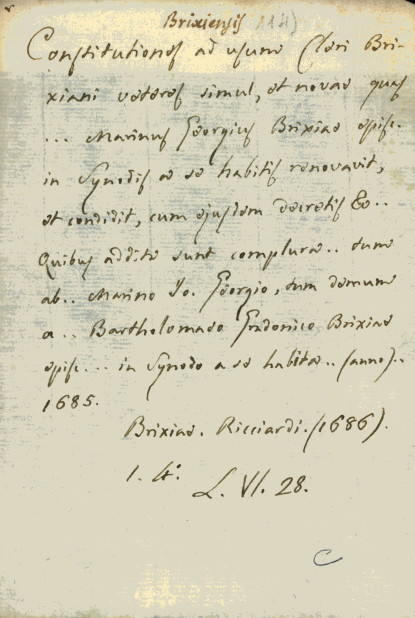 Brixiensis 114)
Constitutiones ad usum Cleri Bri-
xiani veteres simul, et novae quas
... Marinus Georgius Brixiae episc.
in Synodis a se habitis renovavit,
et condidit, cum ejusdem decretis &c..
Quibus addita sunt complura.. tum
ab.. Marino Jo. Georgio, tum demum
a.. Bartholomaeo Gradonico Brixiae
episc... in Synodo a se habita.. (anno)..
1685.
Brixiae. Ricciardi. (1686).
1. 4°.
L. VI. 28.
C